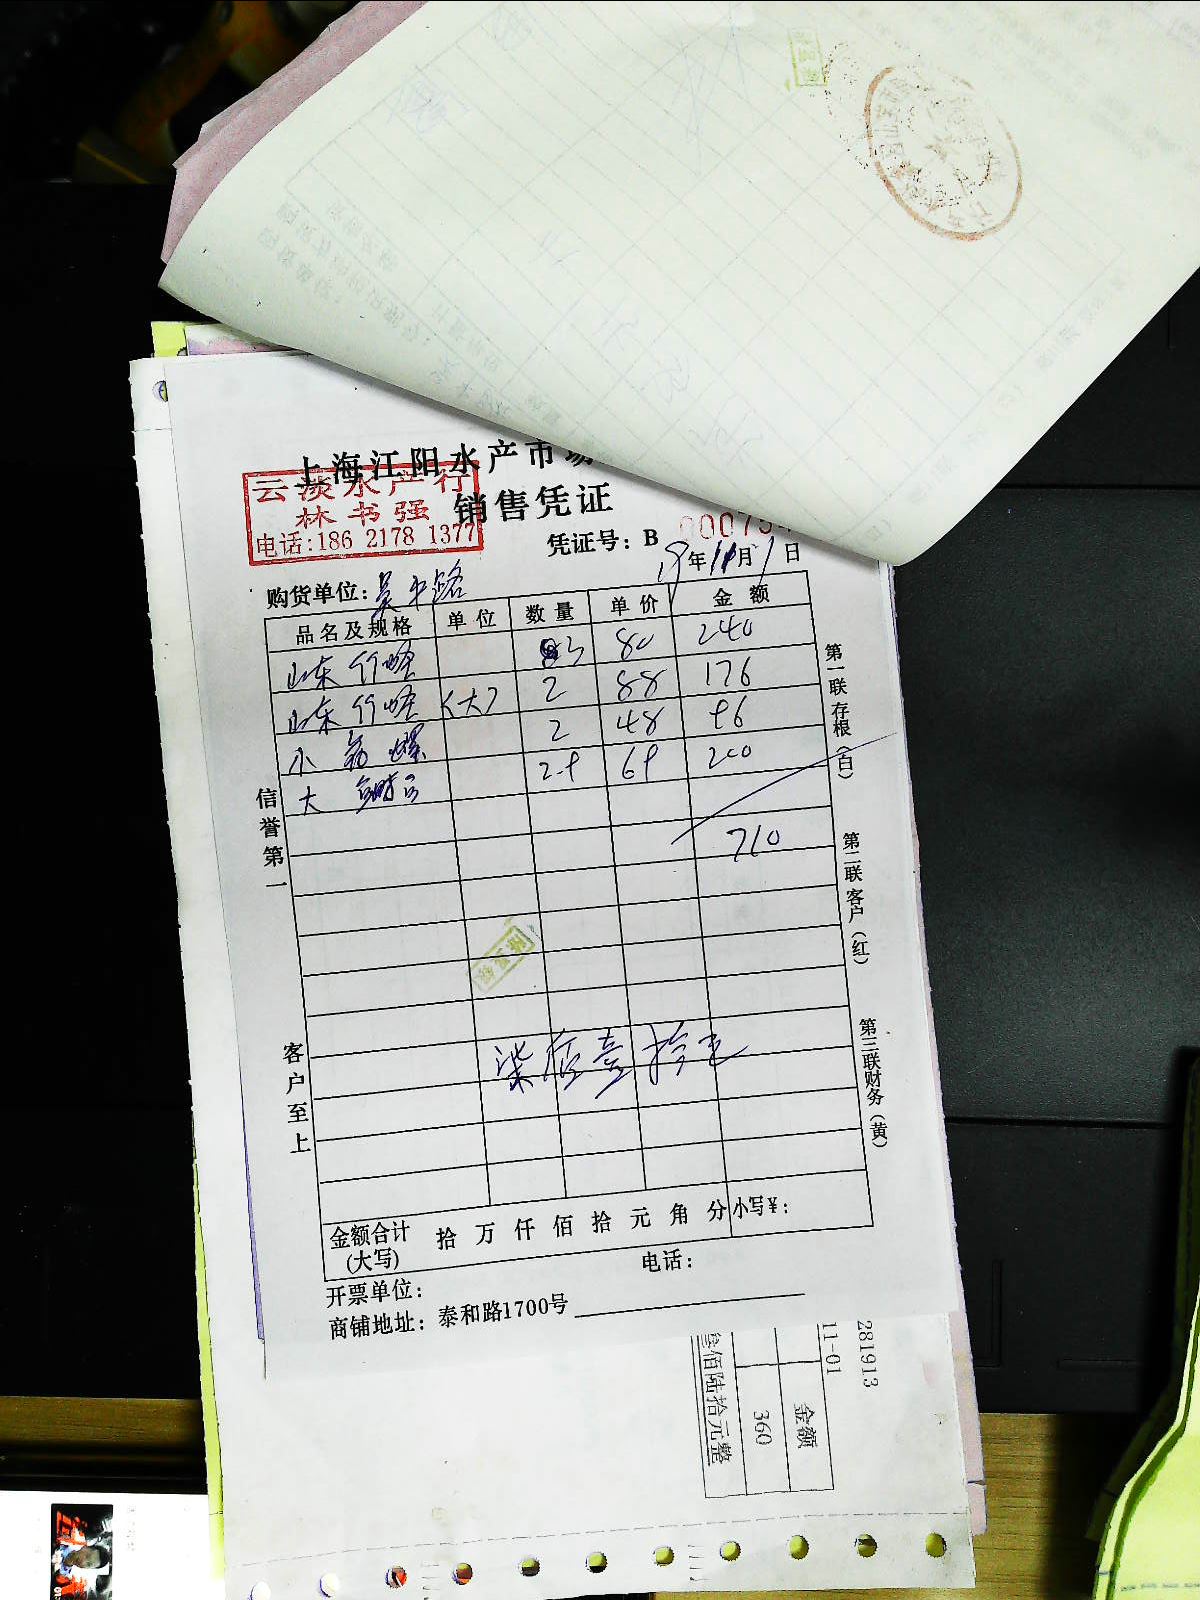 上海江阳水产市场
云淡水产行
林书强
电话:186 2178 1377
销售凭证
凭证号: B 00075
19年11月1日
购货单位: 吴中路
品名及规格 单位 数量 单价 金额
山东竹蛏 3 80 240
山东竹蛏 (大) 2 88 176
小 螺 2 48 96
大 2.9 69 200
710
柒佰壹拾元
金额合计 (大写) 拾 万 仟 佰 拾 元 角 分 小写¥:
开票单位: 电话:
商铺地址: 泰和路1700号
信誉第一
客户至上
第一联 存根(白)
第二联 客户(红)
第三联 财务(黄)
281913
11-01
金额
360
叁佰陆拾元整